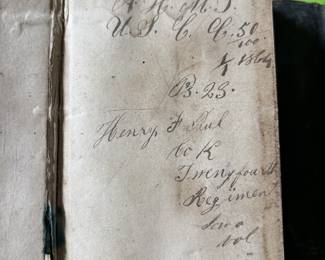 U. S. C. C. 50
100
B. 23.
Henry F Paul
Co K
Twenyfourth
Regiment
Iowa
vol